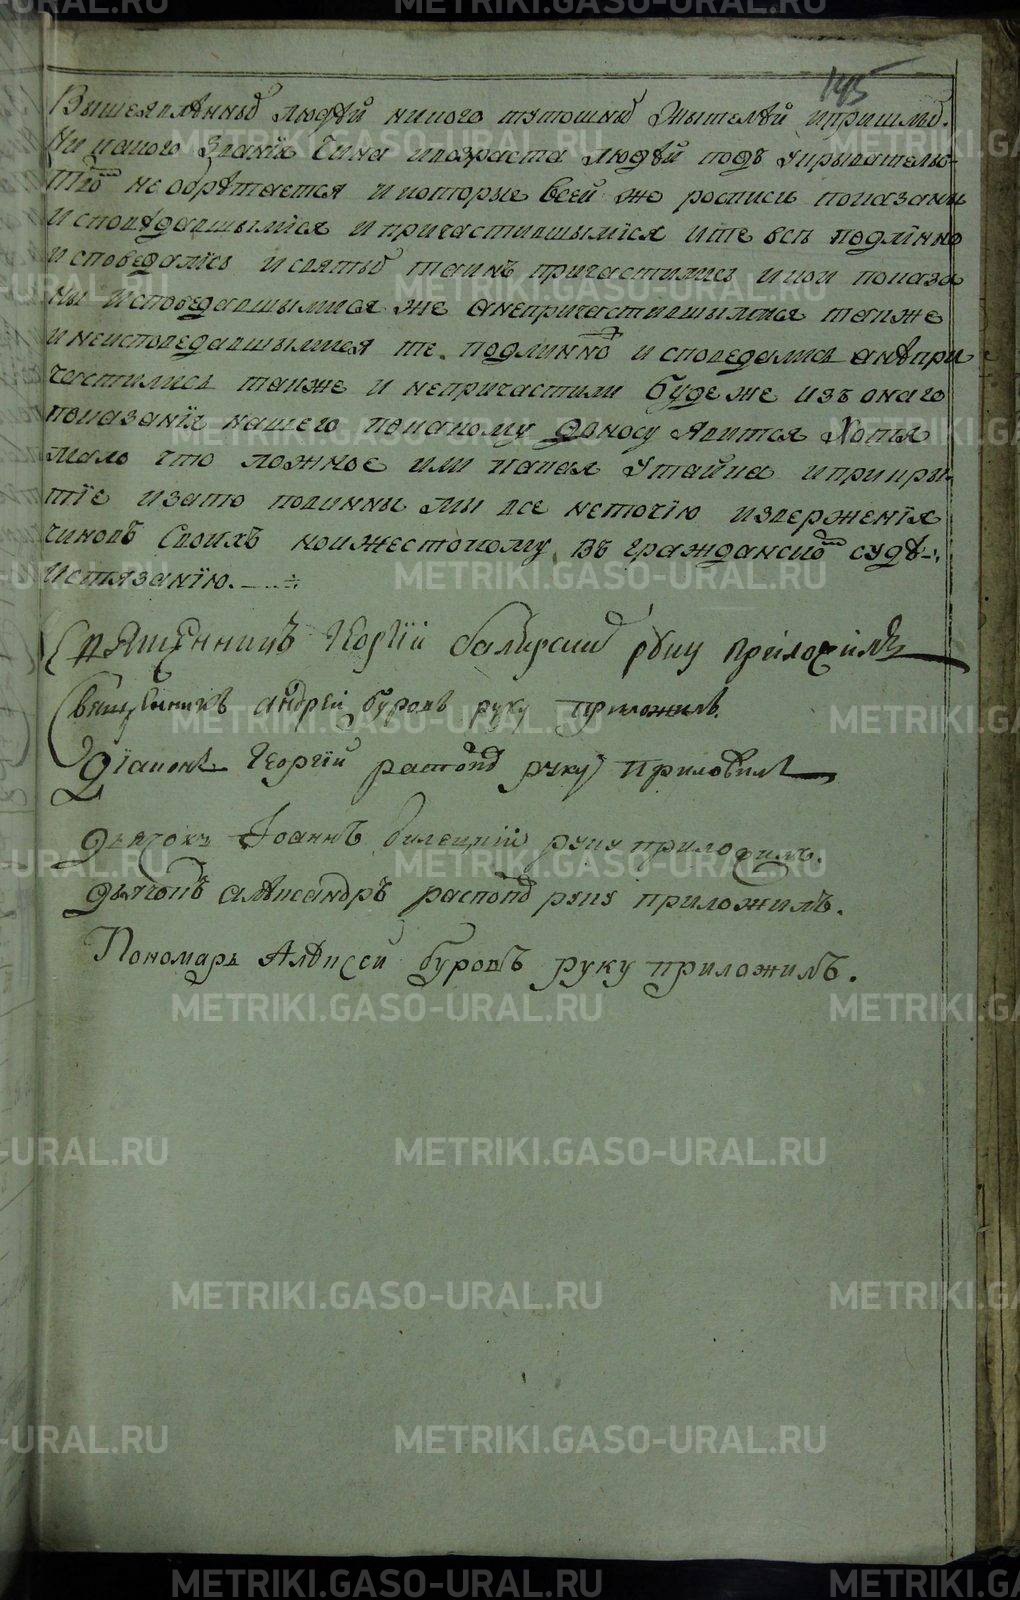 145
Вышеявлѣнныхъ людѣй никого тутошныхъ Жытелѣй ипришлыхъ.
Ни какого Званїя Чина ивозраста людѣй подъ укрывательс-
твомъ не обрѣтается И которые всей же росписи показаны
исповѣдавшымїся ипричастившымїся ите всѣ подлїнно
исповѣдалїсь исвятыхъ таинъ причастилїсь икои показа
ны исповедавшымися же анепричастившымися также
инеисповедавшымися те подлинно исповедались анѣпри
частились также и непричастили буде же изъ онаго
показанїя нашего покакому доносу явится Хотя
мало что ложное или какая утайка иприкры-
тїе изато повинны мы все неточїю извержения
чиновъ своихъ ноижестокому въ гражданскомъ судѣ
истязанїю.
Священникъ Георгїй руку приложилъ
Священникъ андрей буровъ руку приложилъ.
Дїаконъ Георгїй распоповъ руку приложилъ
Дьячокъ Иоаннъ билецкїй руку приложилъ.
Дьячокъ алѣксандръ распоповъ руку приложилъ.
Пономарь Алѣксей буровъ руку приложилъ.
METRIKI.GASO-URAL.RU